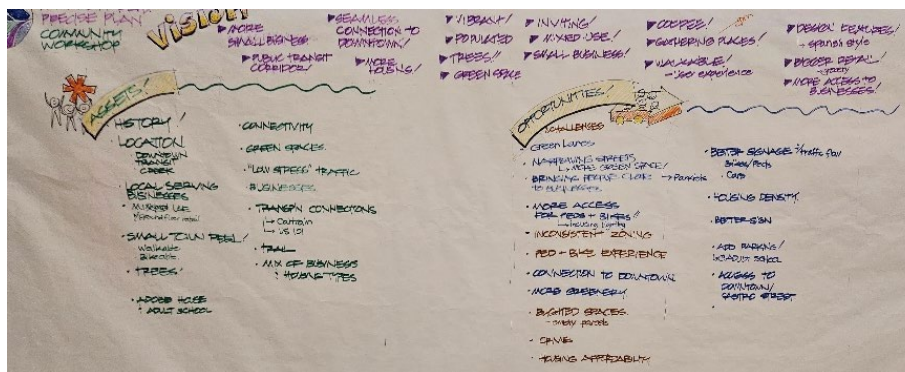 PRECISE PLAN
COMMUNITY
WORKSHOP
VISION
MORE
SMALL BUSINESS
PUBLIC TRANSIT
CORRIDOR!
SEAMLESS
CONNECTION TO
DOWNTOWN!
MORE
HOUSING!
VIBRANT!
POPULATED
TREES!!
GREEN SPACE
INVITING!
MIXED USE!
SMALL BUSINESS!
GATHERING PLACES!
WALKABLE!
user experience
DESIGN FEATURES!
spanish style
BIGGER DETAIL!
MORE ACCESS TO
BUSINESSES!
ASSETS!
HISTORY!
LOCATION
DOWNTOWN
TRANSIT
CREEK
LOCAL SERVING
BUSINESSES
SMALL TOWN FEEL!
Walkable
Bikeable
TREES!
ADOBE HOUSE
ADULT SCHOOL
CONNECTIVITY
GREEN SPACES
"LOW STRESS" TRAFFIC
BUSINESSES
TRANSIT CONNECTIONS
Caltrain
US 101
TRAIL
MIX OF BUSINESS
HOUSING TYPES
OPPORTUNITIES!
CHALLENGES
Green Lanes
NARROWING STREETS
MORE GREEN SPACE!
BRINGING PEOPLE CLOSE
TO BUSINESSES
MORE ACCESS
FOR PEDS + BIKES!!
INCONSISTENT ZONING
PED + BIKE EXPERIENCE
CONNECTION TO DOWNTOWN
MORE GREENERY
BLIGHTED SPACES
empty parcels
CRIME
HOUSING AFFORDABILITY
BETTER SIGNAGE traffic flow
Bikes/Peds
Cars
HOUSING DENSITY
BETTER SIGN
ADD PARKING!
ADULT SCHOOL
ACCESS TO
DOWNTOWN/
CASTRO STREET